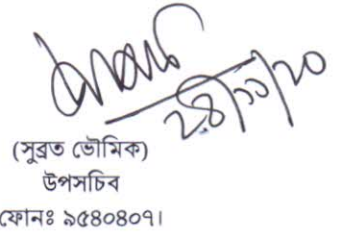 ২৪/১১/২০
(সুব্রত ভৌমিক)
উপসচিব
ফোনঃ ৯৫৪০৪০৭।